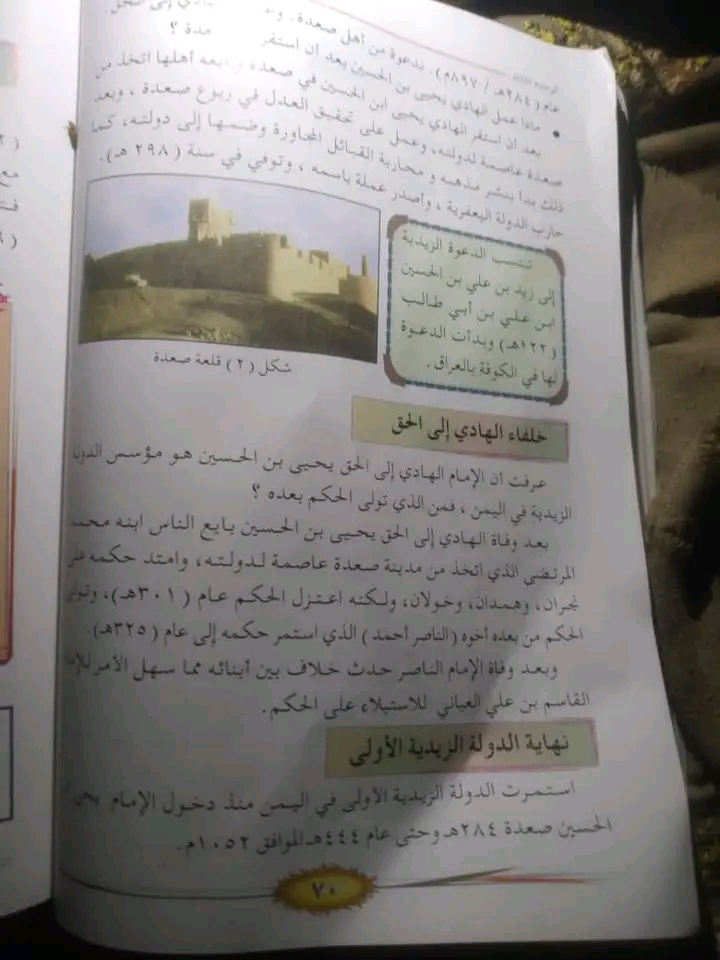 عام (٢٨٤هـ / ٨٩٧م). بدعوة من أهل صعدة.
• ماذا عمل الهادي يحيى بن الحسين بعد أن استقر
بعد أن استقر الهادي يحيى ابن الحسين في صعدة وبايعه أهلها اتخذ من
صعدة عاصمة لدولته، وعمل على تحقيق العدل في ربوع صعدة، وبعد
ذلك بدأ بنشر مذهبه و محاربة القبائل المجاورة وضمها إلى دولته، كما
حارب الدولة اليعفرية، وأصدر عملة باسمه، وتوفي في سنة (٢٩٨ هـ).
تنتسب الدعوة الزيدية
إلى زيد بن علي بن الحسين
ابن علي بن أبي طالب
(١٢٢هـ) وبدأت الدعوة
لها في الكوفة بالعراق.
شكل (٢) قلعة صعدة
خلفاء الهادي إلى الحق
عرفت أن الإمام الهادي إلى الحق يحيى بن الحسين هو مؤسس الدولة
الزيدية في اليمن، فمن الذي تولى الحكم بعده ؟
بعد وفاة الهادي إلى الحق يحيى بن الحسين بايع الناس ابنه محمد
المرتضى الذي اتخذ من مدينة صعدة عاصمة لدولته، وامتد حكمه على
نجران، وهمدان، وخولان، ولكنه اعتزل الحكم عام (٣٠١هـ)، وتولى
الحكم من بعده أخوه (الناصر أحمد) الذي استمر حكمه إلى عام (٣٢٥هـ).
وبعد وفاة الإمام الناصر حدث خلاف بين أبنائه مما سهل الأمر
القاسم بن علي العياني للاستيلاء على الحكم.
نهاية الدولة الزيدية الأولى
استمرت الدولة الزيدية الأولى في اليمن منذ دخول الإمام
الحسين صعدة ٢٨٤هـ وحتى عام ٤٤٤هـ الموافق ١٠٥٢م.
٧٠